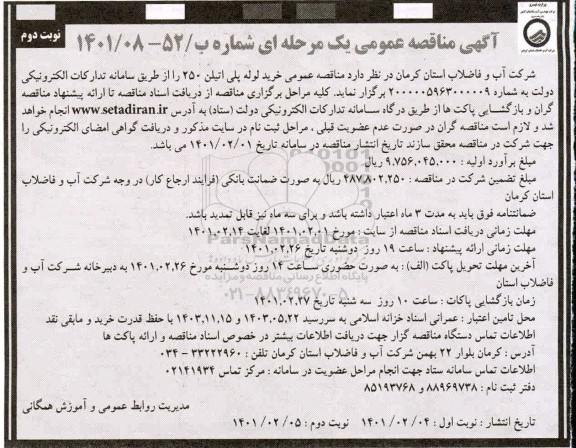 نوبت دوم
آگهی مناقصه عمومی یک مرحله ای شماره ب/۵۲- ۱۴۰۱/۰۸
شرکت آب و فاضلاب استان کرمان در نظر دارد مناقصه عمومی خرید لوله پلی اتیلن ۲۵۰ را از طریق سامانه تدارکات الکترونیکی
دولت به شماره ۲۰۰۰۰۰۵۹۶۳۰۰۰۰۰۹ برگزار نماید. کلیه مراحل برگزاری مناقصه از دریافت اسناد مناقصه تا ارائه پیشنهاد مناقصه
گران و بازگشایی پاکت ها از طریق درگاه سامانه تدارکات الکترونیکی دولت (ستاد) به آدرس www.setadiran.ir انجام خواهد
شد و لازم است مناقصه گران در صورت عدم عضویت قبلی ، مراحل ثبت نام در سایت مذکور و دریافت گواهی امضای الکترونیکی را
جهت شرکت در مناقصه محقق سازند تاریخ انتشار مناقصه در سامانه تاریخ ۱۴۰۱/۰۲/۰۱ می باشد.
مبلغ برآورد اولیه : ۹.۷۵۶.۰۴۵.۰۰۰ ریال
مبلغ تضمین شرکت در مناقصه : ۴۸۷.۸۰۲.۲۵۰ ریال به صورت ضمانت بانکی (فرایند ارجاع کار) در وجه شرکت آب و فاضلاب
استان کرمان
ضمانتنامه فوق باید به مدت ۳ ماه اعتبار داشته باشد و برای سه ماه نیز قابل تمدید باشد.
مهلت زمانی دریافت اسناد مناقصه از سایت : مورخ ۱۴۰۱.۰۲.۰۱ لغایت ۱۴۰۱.۰۲.۱۴
مهلت زمانی ارائه پیشنهاد : ساعت ۱۹ روز دوشنبه تاریخ ۱۴۰۱.۰۲.۲۶
آخرین مهلت تحویل پاکت (الف) : به صورت حضوری ساعت ۱۴ روز دوشنبه مورخ ۱۴۰۱.۰۲.۲۶ به دبیرخانه شرکت آب و
فاضلاب استان
زمان بازگشایی پاکات : ساعت ۱۰ روز سه شنبه تاریخ ۱۴۰۱.۰۲.۲۷
محل تامین اعتبار : عمرانی اسناد خزانه اسلامی به سررسید ۱۴۰۳.۰۵.۲۲ و ۱۴۰۳.۱۱.۱۵ با حفظ قدرت خرید و مابقی نقد
اطلاعات تماس دستگاه مناقصه گزار جهت دریافت اطلاعات بیشتر در خصوص اسناد مناقصه و ارائه پاکت ها
آدرس : کرمان بلوار ۲۲ بهمن شرکت آب و فاضلاب استان کرمان تلفن : ۳۳۲۲۲۹۶۰ - ۰۳۴
اطلاعات تماس سامانه ستاد جهت انجام مراحل عضویت در سامانه : مرکز تماس ۰۲۱۴۱۹۳۴
دفتر ثبت نام : ۸۸۹۶۹۷۳۸ و ۸۵۱۹۳۷۶۸
مدیریت روابط عمومی و آموزش همگانی
تاریخ انتشار : نوبت اول : ۱۴۰۱/۰۲/۰۴ نوبت دوم : ۱۴۰۱/۰۲/۰۵